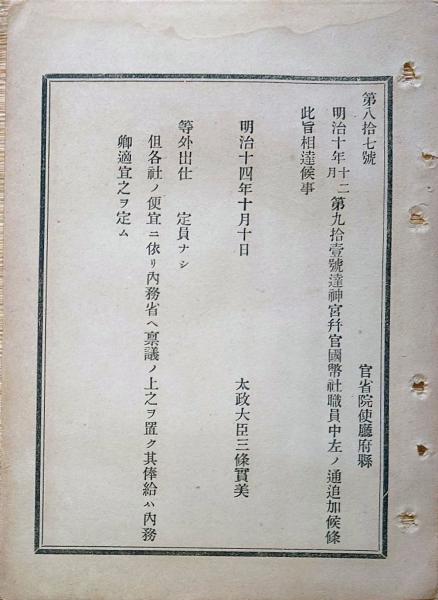 第八拾七號
官省院使廳府縣
明治十年十二月第九拾壹號達神宮幷官國幣社職員中左ノ通追加候條
此旨相達候事
明治十四年十月十日
太政大臣三條實美
等外出仕 定員ナシ
但各社ノ便宜ニ依リ內務省ヘ稟議ノ上之ヲ置ク其俸給ハ內務
卿適宜之ヲ定ム